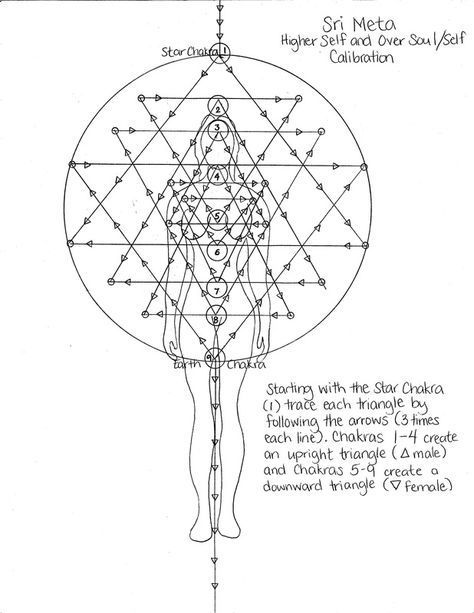 Sri Meta
Higher Self and Over Soul/Self
Calibration
Star Chakra 1
2
3
4
5
6
7
8
9
Earth Chakra
Starting with the Star Chakra
(1) trace each triangle by
following the arrows (3 times
each line). Chakras 1-4 create
an upright triangle (△ male)
and Chakras 5-9 create a
downward triangle (▽ female)